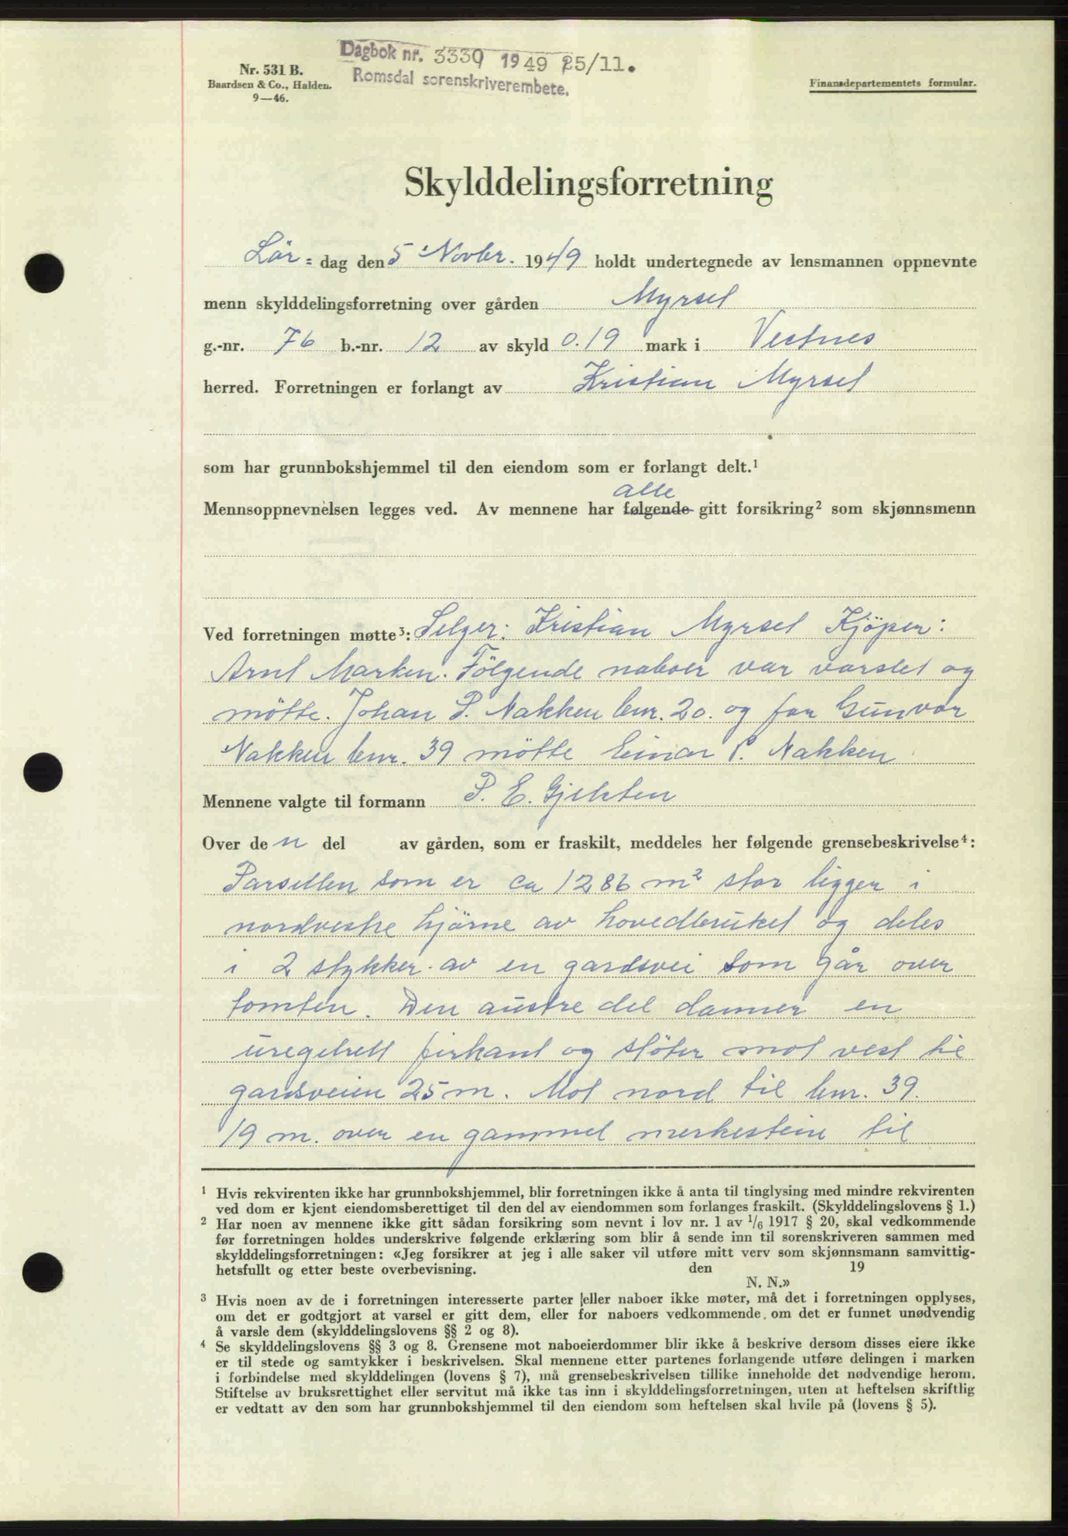 Dagbok nr. 3339 1949 25/11.
Romsdal sorenskriverembete.
Nr. 531 B.
Baardsen & Co., Halden.
9—46.
Finansdepartementets formular.
Skylddelingsforretning
Lör = dag den 5 Novbr. 1949 holdt undertegnede av lensmannen oppnevnte
menn skylddelingsforretning over gården Myrsel
g.-nr. 76 b.-nr. 12 av skyld 0.19 mark i Vestnes
herred. Forretningen er forlangt av Kristian Myrsel
som har grunnbokshjemmel til den eiendom som er forlangt delt.¹
alle
Mennsoppnevnelsen legges ved. Av mennene har følgende gitt forsikring² som skjønnsmenn
Ved forretningen møtte³: Selger: Kristian Myrsel Kjöper:
Arnt Marken. Fölgende naboer var varslet og
mötte. Johan P. Nakken bnr. 20. og for Gunvor
Nakken bnr. 39 mötte Einar P. Nakken
Mennene valgte til formann P. E. Gjelsten
Over de n del av gården, som er fraskilt, meddeles her følgende grensebeskrivelse⁴:
Parsellen som er ca 1286 m² stor ligger i
nordvestre hjörne av hovedbruket og deles
i 2 stykker av en gardsvei som går over
tomten. Den austre del danner en
uregelrett firkant og stöter mot vest til
gardsveien 25 m. Mot nord til bnr. 39.
19 m. over en gammel merkestein til
¹ Hvis rekvirenten ikke har grunnbokshjemmel, blir forretningen ikke å anta til tinglysing med mindre rekvirenten
ved dom er kjent eiendomsberettiget til den del av eiendommen som forlanges fraskilt. (Skylddelingslovens § 1.)
² Har noen av mennene ikke gitt sådan forsikring som nevnt i lov nr. 1 av 1/6 1917 § 20, skal vedkommende
før forretningen holdes underskrive følgende erklæring som blir å sende inn til sorenskriveren sammen med
skylddelingsforretningen: «Jeg forsikrer at jeg i alle saker vil utføre mitt verv som skjønnsmann samvittig-
hetsfullt og etter beste overbevisning. den 19
N. N.»
³ Hvis noen av de i forretningen interesserte parter eller naboer ikke møter, må det i forretningen opplyses,
om det er godtgjort at varsel er gitt dem, eller for naboers vedkommende, om det er funnet unødvendig
å varsle dem (skylddelingslovens §§ 2 og 8).
⁴ Se skylddelingslovens §§ 3 og 8. Grensene mot naboeierdommer blir ikke å beskrive dersom disses eiere ikke
er til stede og samtykker i beskrivelsen. Skal mennene etter partenes forlangende utføre delingen i marken
i forbindelse med skylddelingen (lovens § 7), må grensebeskrivelsen tillike inneholde det nødvendige herom.
Stiftelse av bruksrettighet eller servitut må ikke tas inn i skylddelingsforretningen, uten at heftelsen skriftlig
er vedtatt av den som har grunnbokshjemmel til den eiendom som heftelsen skal hvile på (lovens § 5).